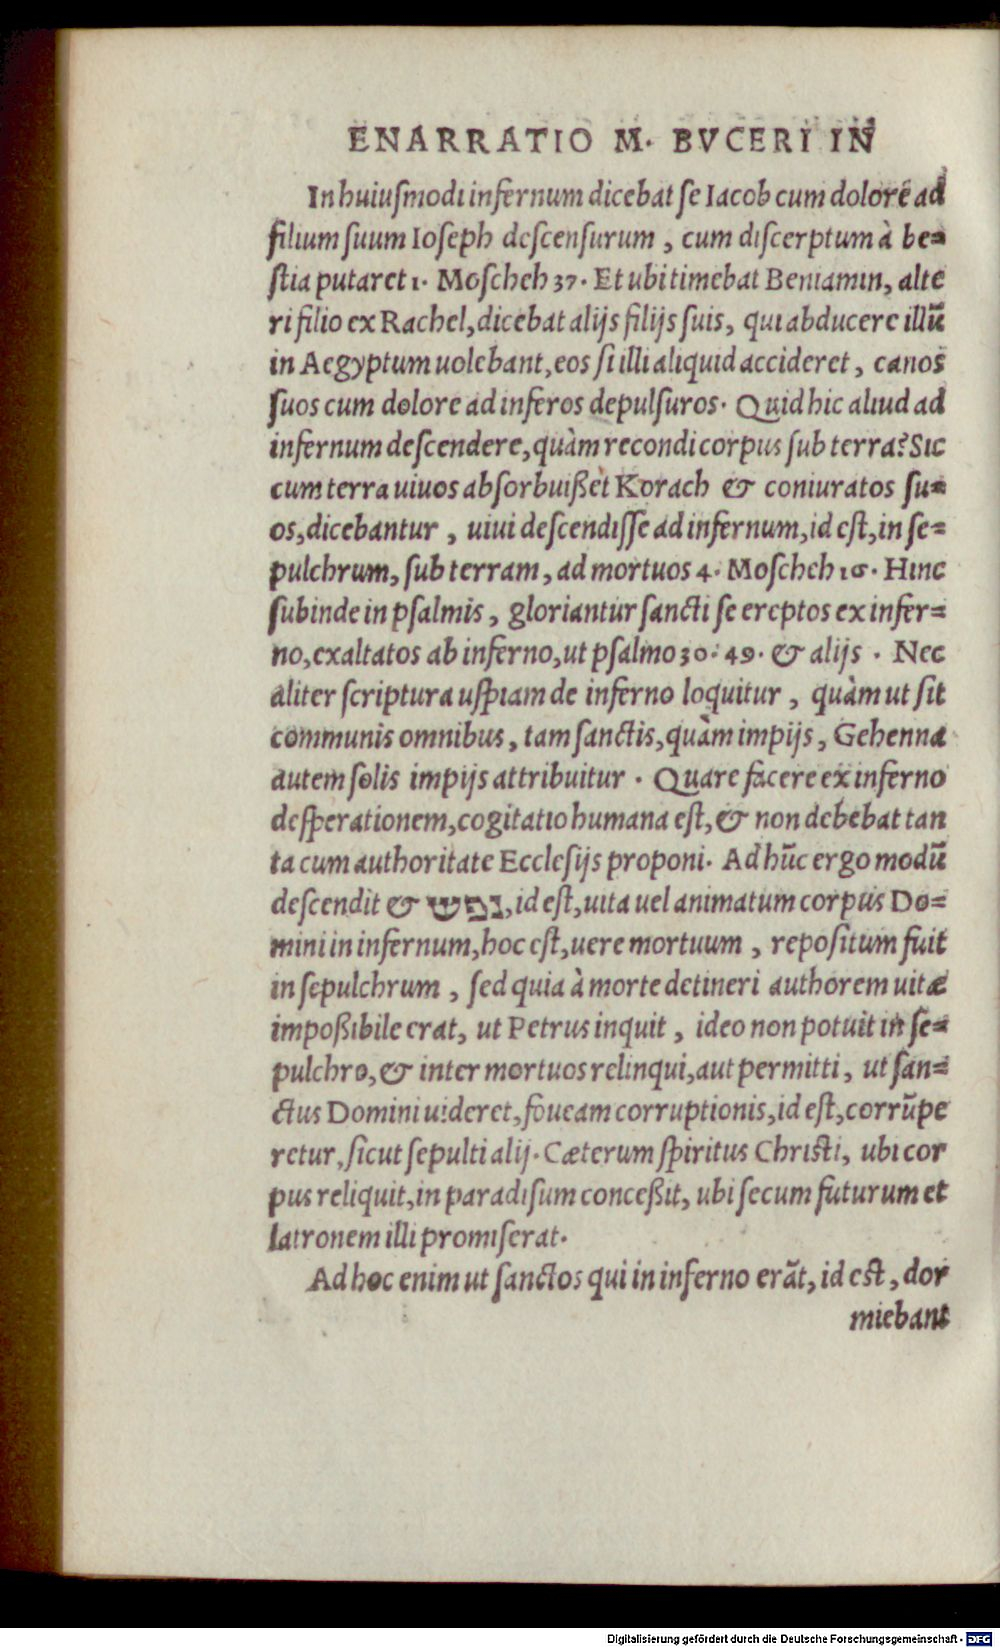 ENARRATIO M. BVCERI IN
In huiuſmodi infernum dicebat ſe Iacob cum dolorē ad
filium ſuum Ioſeph deſcenſurum, cum diſcerptum à be=
ſtia putaret 1. Moſcheh 37. Et ubi timebat Beniamin, alte
ri filio ex Rachel, dicebat alijs filijs ſuis, qui abducere illū
in Aegyptum uolebant, eos ſi illi aliquid accideret, canos
ſuos cum dolore ad inferos depulſuros. Quid hic aliud ad
infernum deſcendere, quàm recondi corpus ſub terra? Sic
cum terra uiuos abſorbuißet Korach & coniuratos ſu=
os, dicebantur, uiui deſcendiſſe ad infernum, id eſt, in ſe=
pulchrum, ſub terram, ad mortuos 4. Moſcheh 16. Hinc
ſubinde in pſalmis, gloriantur ſancti ſe ereptos ex infer=
no, exaltatos ab inferno, ut pſalmo 30. 49. & alijs. Nec
aliter ſcriptura uſpiam de inferno loquitur, quàm ut ſit
communis omnibus, tam ſanctis, quàm impijs, Gehenna
autem ſolis impijs attribuitur. Quare facere ex inferno
deſperationem, cogitatio humana eſt, & non debebat tan
ta cum authoritate Eccleſijs proponi. Ad hūc ergo modū
deſcendit & נפש, id eſt, uita uel animatum corpus Do=
mini in infernum, hoc eſt, uere mortuum, repoſitum fuit
in ſepulchrum, ſed quia à morte detineri authorem uitæ
impoßibile erat, ut Petrus inquit, ideo non potuit in ſe=
pulchro, & inter mortuos relinqui, aut permitti, ut ſan=
ctus Domini uideret, foueam corruptionis, id eſt, corrūpe
retur, ſicut ſepulti alij. Cæterum ſpiritus Chriſti, ubi cor
pus reliquit, in paradiſum conceßit, ubi ſecum futurum et
latronem illi promiſerat.
Ad hoc enim ut ſanctos qui in inferno erāt, id eſt, dor
miebant
Digitalisierung gefördert durch die Deutsche Forschungsgemeinschaft - DFG